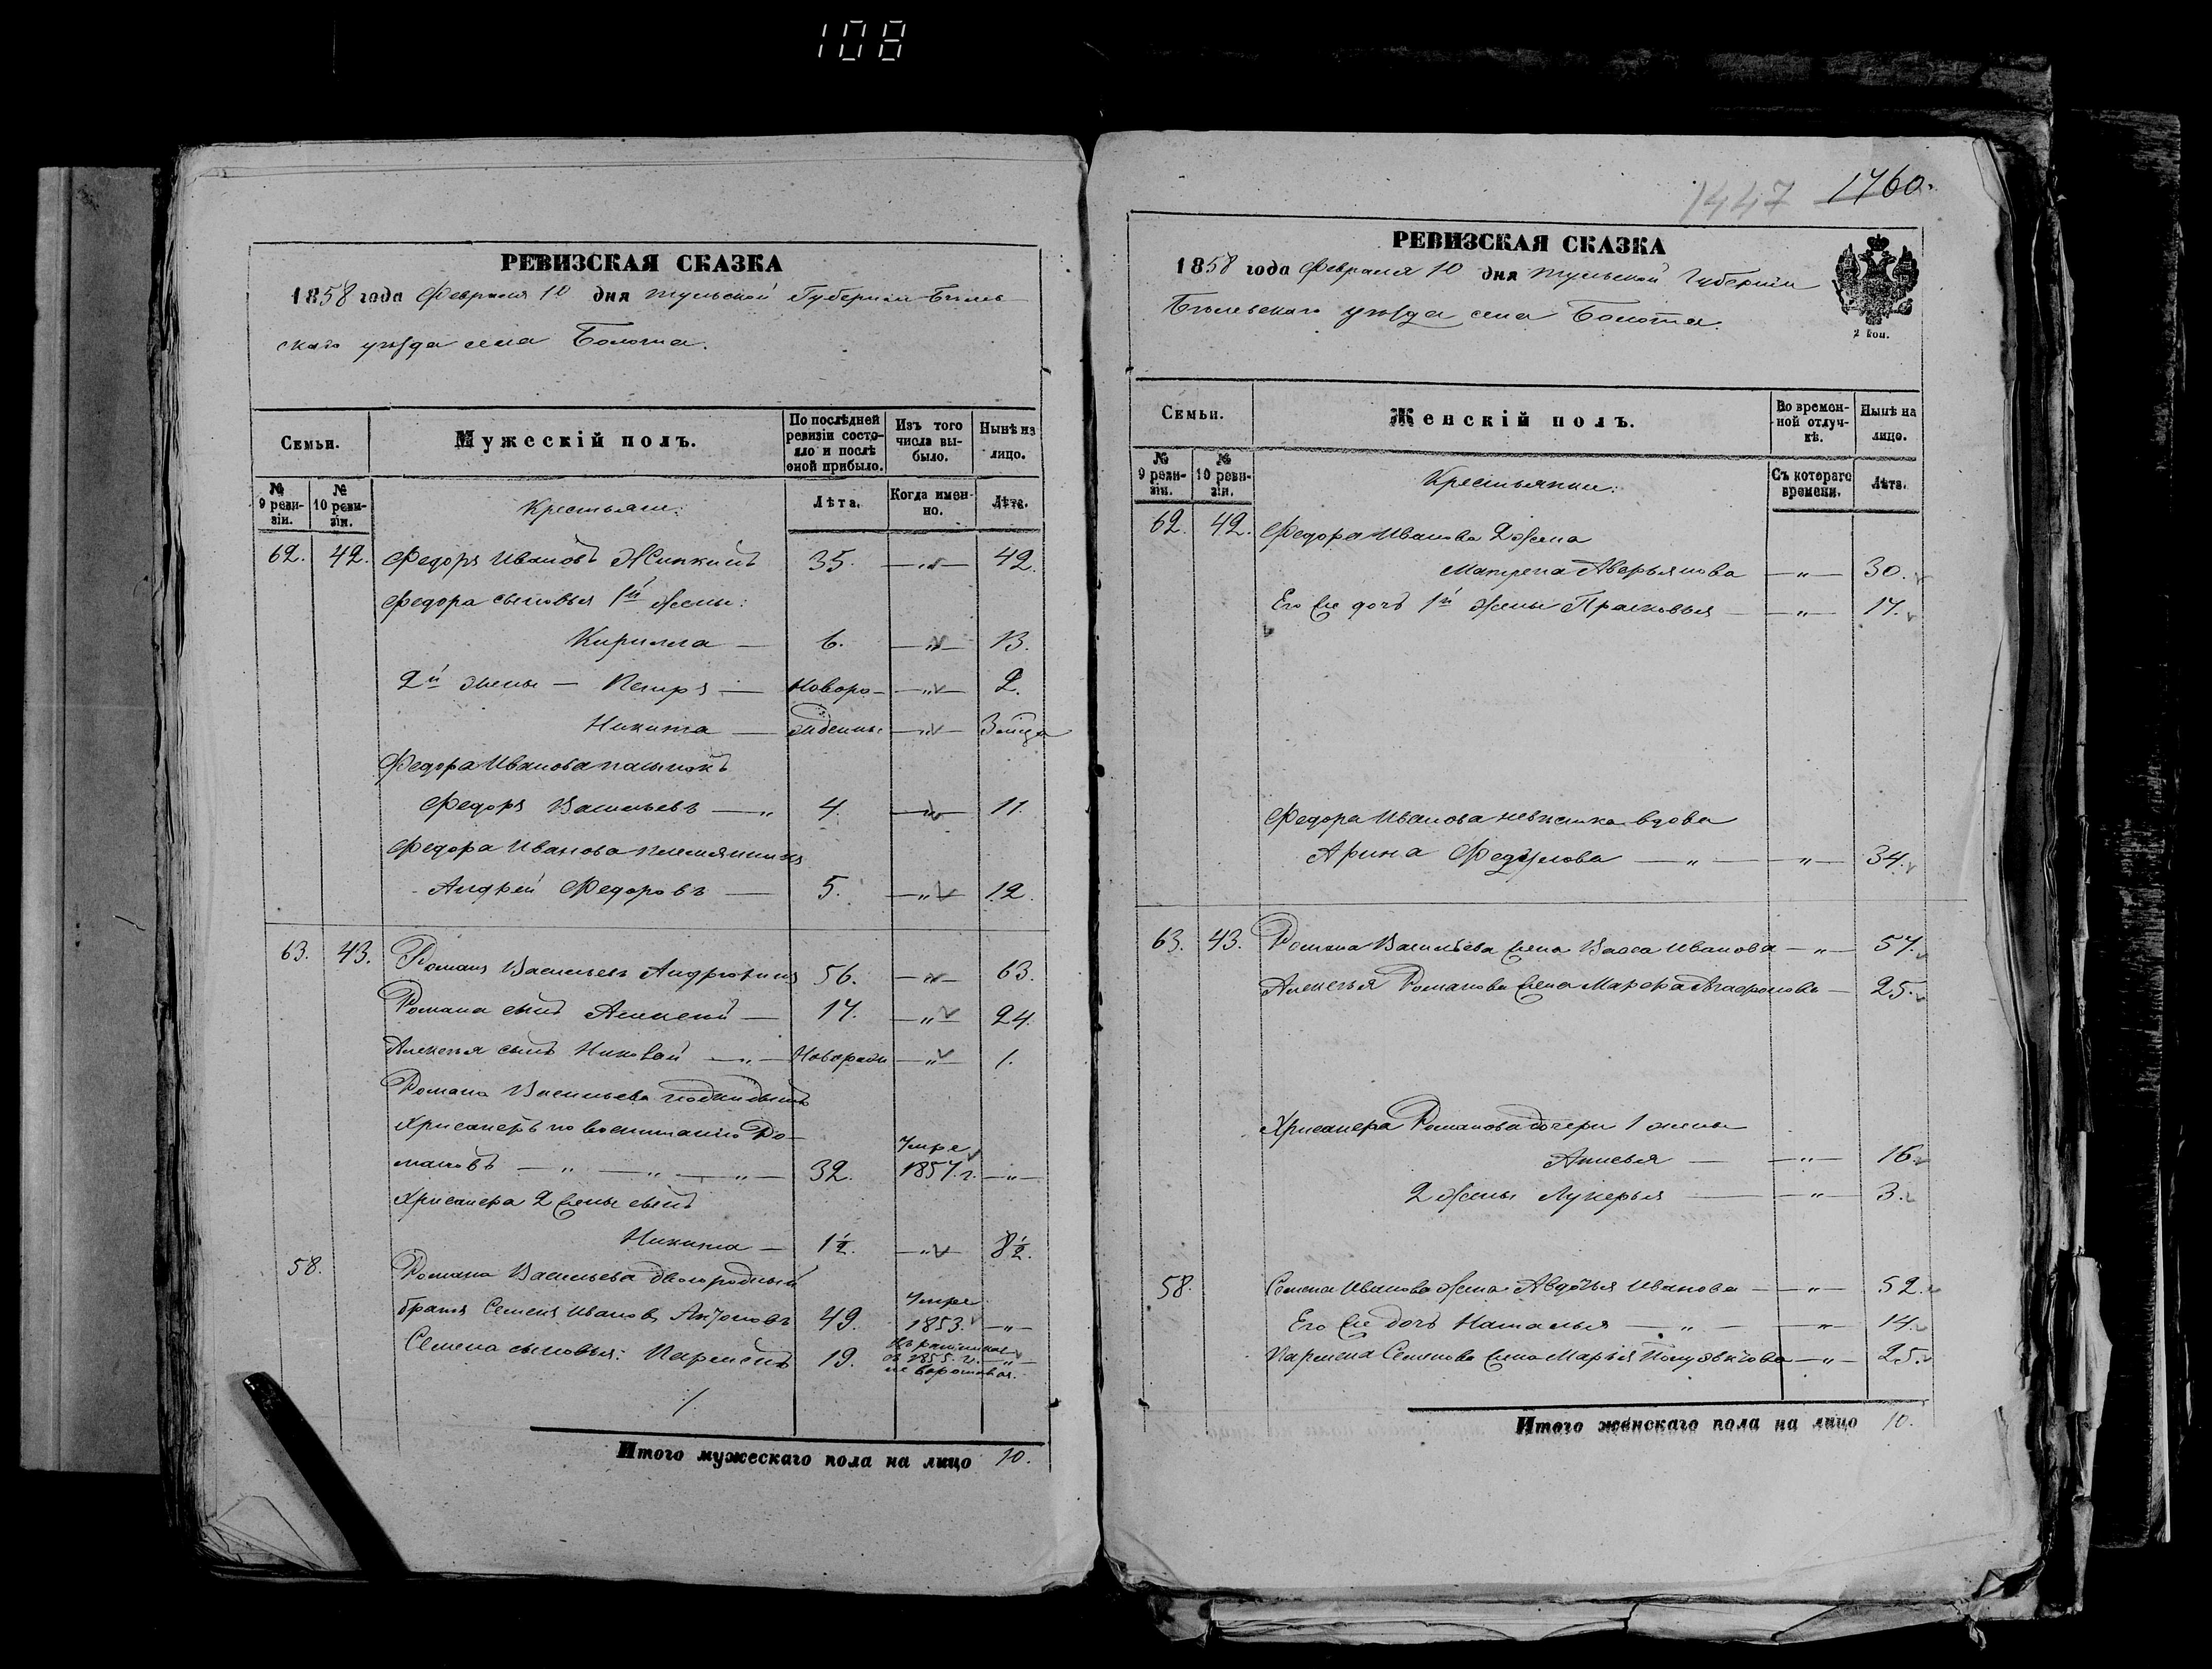 108
РЕВИЗСКАЯ СКАЗКА
1858 года Февраля 10 дня Тульской Губернии Бѣлев
скаго уѣзда села Болота.
Семьи.
Мужескій полъ.
По послѣдней ревизіи состояло и послѣ оной прибыло.
Изъ того числа выбыло.
Нынѣ на лицо.
№ 9 ревизіи.
№ 10 ревизіи.
Крестьяне:
Лѣта.
Когда именно.
Лѣта.
62. 42. Федоръ Ивановъ 35. —„— 42.
Федора сыновья 1й жены:
Кирилла — 6. —„— 13.
2й жены — Петръ — Новоро- —„— 2.
Никита — жденны —„—
Федора Иванова пасынокъ
Федоръ Васильевъ —„ 4. —„— 11.
Федора Иванова племянникъ
Андрей Федоровъ — 5. —„— 12.
63. 43. Романъ Васильевъ Андрюхинъ 56. —„— 63.
Романа сынъ Алексей — 17. —„— 24.
Алексея сынъ Николай —„— Новорожд —„— 1.
Романа Васильева подкидышъ
Хрисанфъ по воспитанію Ро-
мановъ —„—„—„— 32. Умре 1857. г. —„—
Хрисанфа 2 жены сынъ
Никита — 1½. —„— 8½.
58. Романа Васильева двоюродный
братъ Семенъ Ивановъ 49. Умре 1853. —„—
Семена сыновья: Парменъ 19. Въ рекрут
съ 1855. г. —„—
/.
Итого мужескаго пола на лицо 10.
1447 1760.
РЕВИЗСКАЯ СКАЗКА
1858 года Февраля 10 дня Тульской Губерніи
Бѣлевскаго уѣзда села Болота.
2 коп.
Семьи.
Женскій полъ.
Во временной отлучкѣ.
Нынѣ на лицо.
№ 9 ревизіи.
№ 10 ревизіи.
Крестьянки:
Съ котораго времени.
Лѣта.
62. 42. Федора Иванова 2 жена
Матрена Аверьянова —„— 30.
Его же дочь 1й жены Прасковья —„— 17.
Федора Иванова невѣстка вдова
Арина —„— —„— 34.
63. 43. Романа Васильева жена Васса Иванова —„— 57.
Алексея Романова жена Марфа — 25.
Хрисанфа Романова дочери 1 жены
Анисья — —„— 16.
2 жены Лукерья — —„— 3.
58. Семена Иванова жена Авдотья Иванова —„— 52.
Его же дочь Наталья —„— —„— 14.
Пармена Семенова жена Марья —„— 25.
Итого женскаго пола на лицо 10.